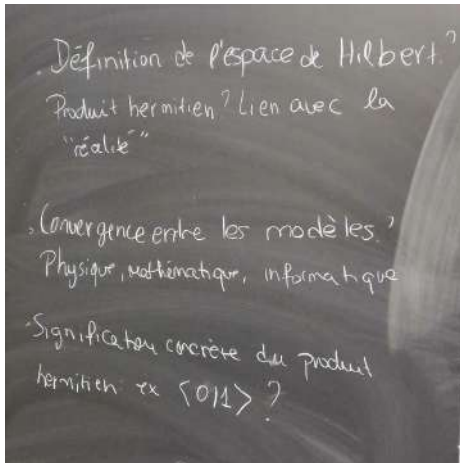 . Définition de l'espace de Hilbert ?
Produit hermitien ? Lien avec la
"réalité"
. Convergence entre les modèles ?
Physique, mathématique, informatique
. Signification concrète du produit
hermitien ex <0|1> ?